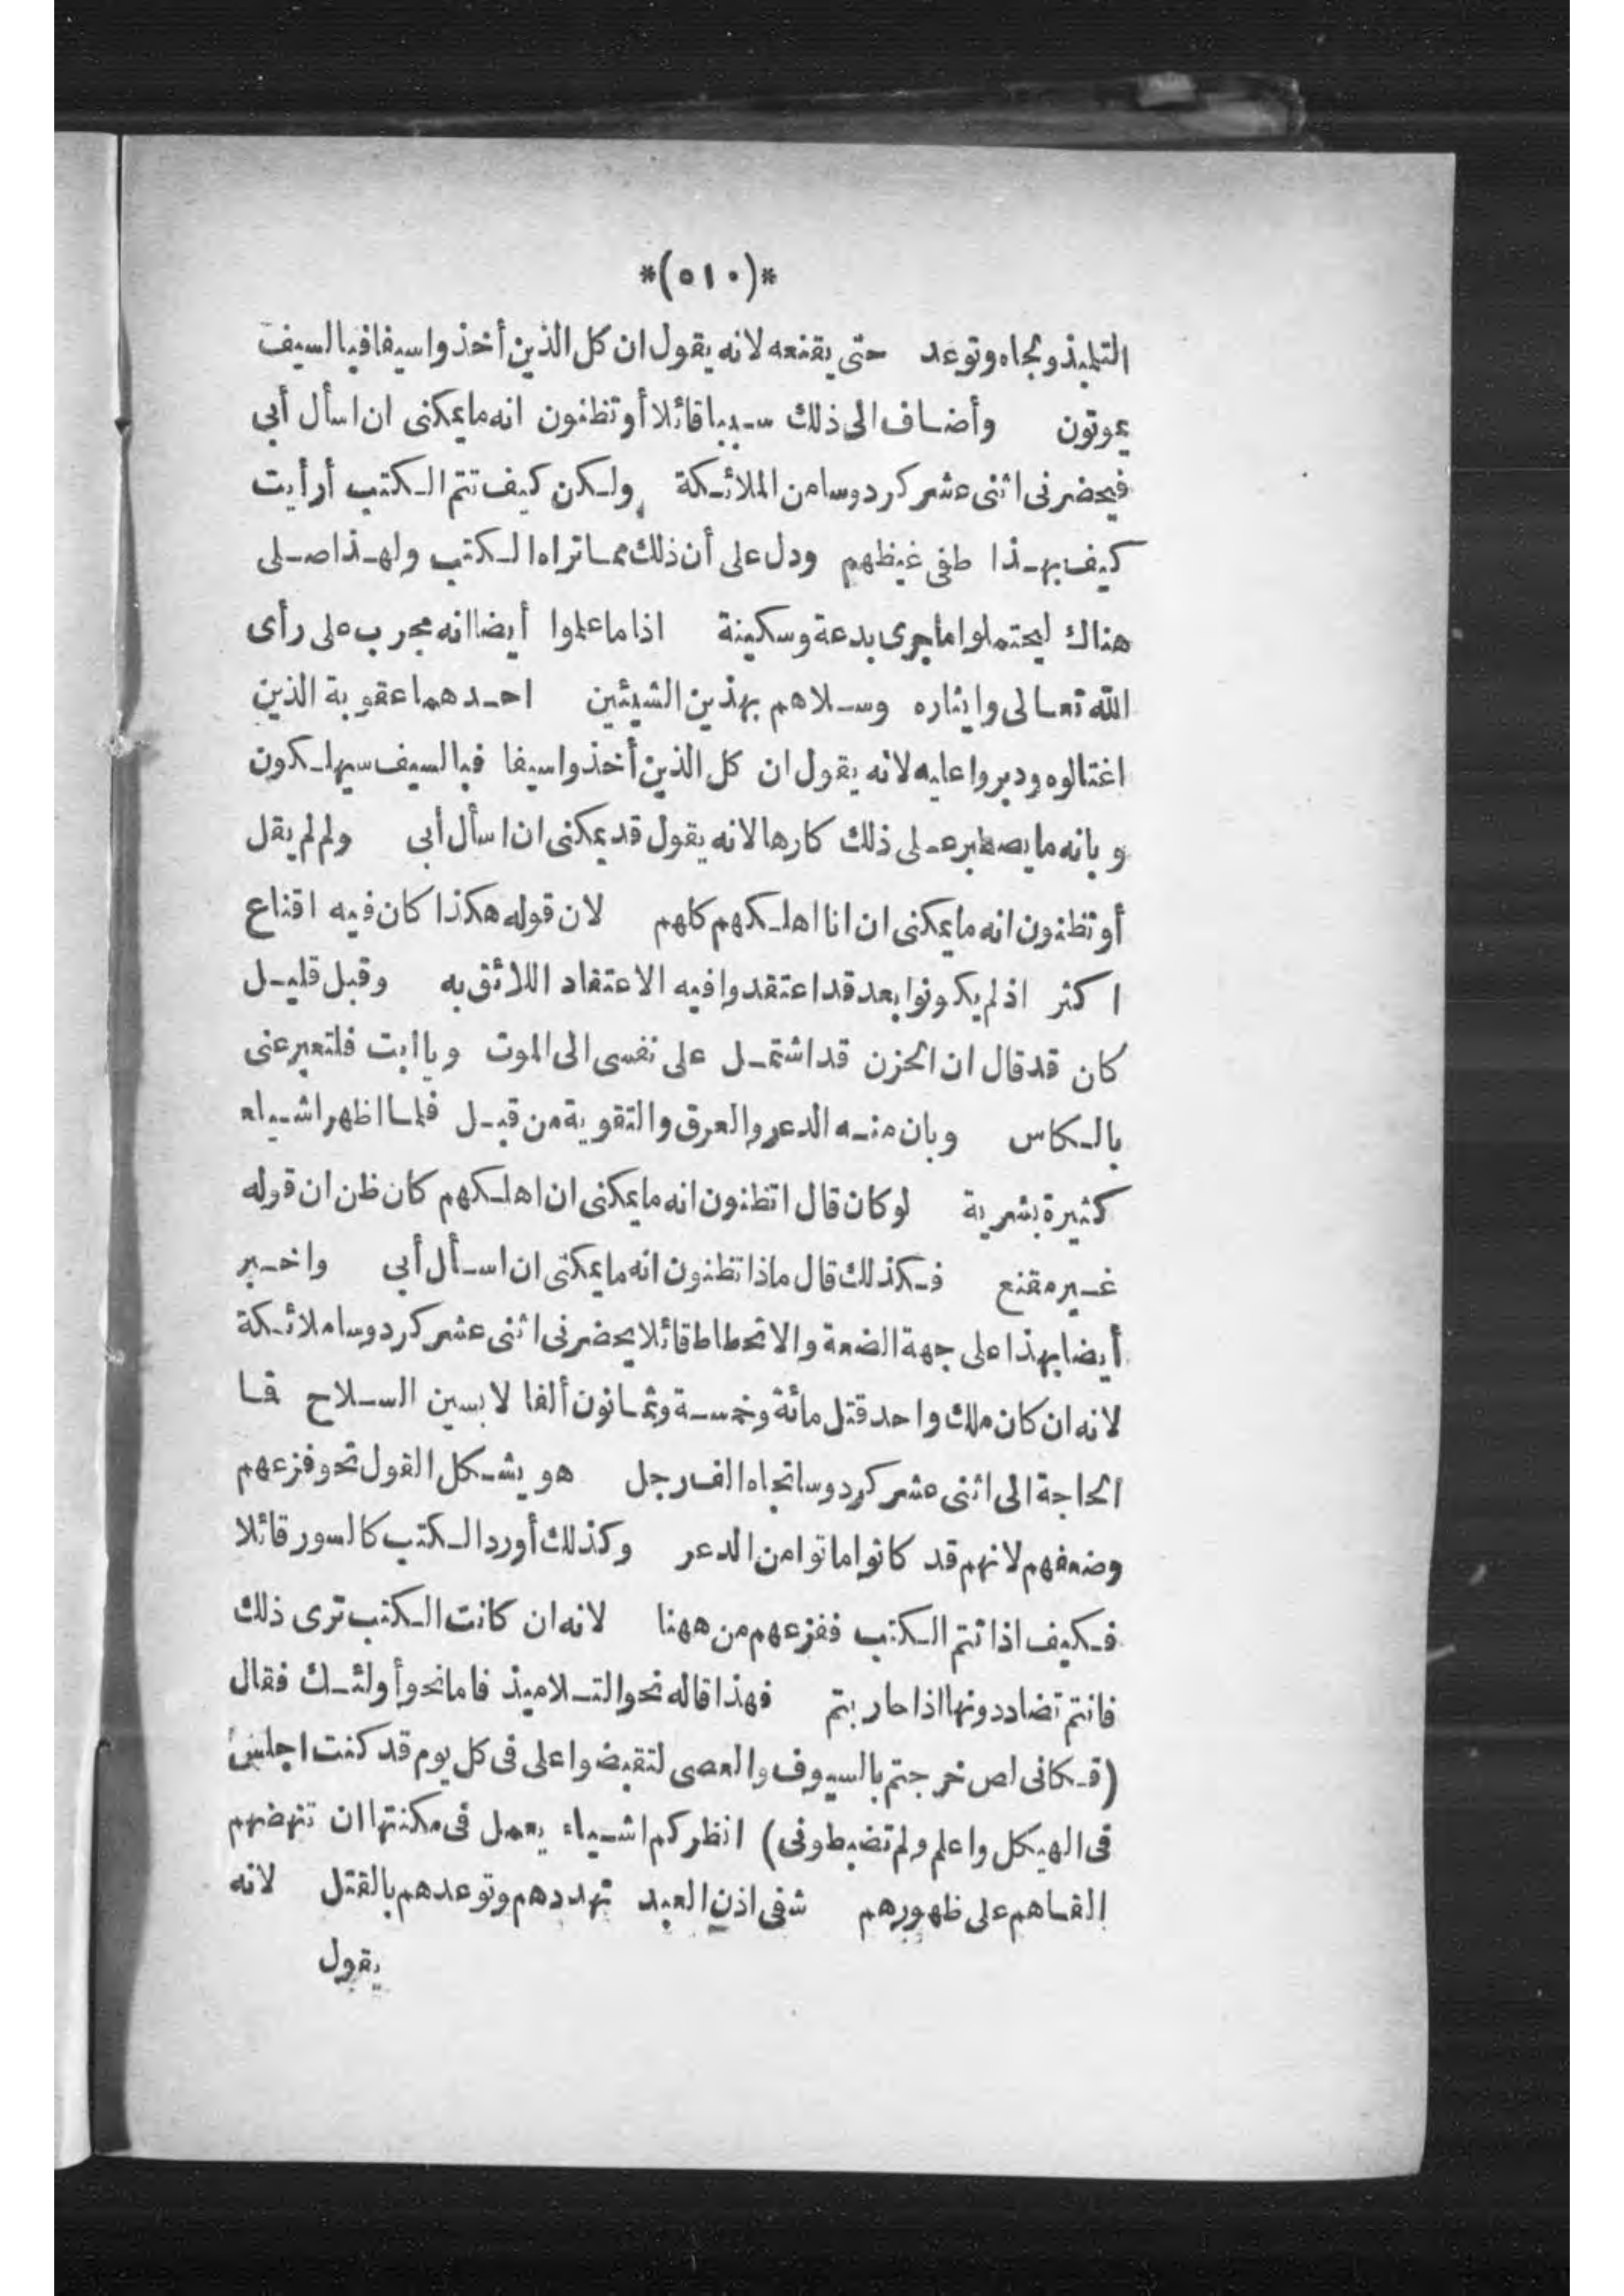 *(٥١٠)*
التلميذ ولجاه وتوعد حتى يقنعه لانه يقول ان كل الذين أخذوا سيفا فبالسيف
يموتون وأضاف الى ذلك سببا قائلا أو تظنون انه ما يمكنى ان اسأل أبى
فيحضرنى اثنى عشر كردوسا من الملائكة ولكن كيف تتم الكتب أرأيت
كيف بهذا طفى غيظهم ودل على أن ذلك مما تراه الكتب ولهذا صلى
هناك ليحتملوا ما جرى بدعة وسكينة اذا ما علموا أيضا انه مجرب على رأى
الله تعالى وايثاره وسلاهم بهذين الشيئين احدهما عقوبة الذين
اغتالوه ودبروا عليه لانه يقول ان كل الذين أخذوا سيفا فبالسيف سيهلكون
وبانه ما يصطبر على ذلك كارها لانه يقول قد يمكنى ان اسأل أبى ولم لم يقل
أو تظنون انه ما يمكنى ان انا اهلكهم كلهم لان قوله هكذا كان فيه اقناع
اكثر اذ لم يكونوا بعد قد اعتقدوا فيه الاعتقاد اللائق به وقبل قليل
كان قد قال ان الحزن قد اشتمل على نفسى الى الموت ويا ابت فلتعبر عنى
بالكاس وبان منه الدعر والعرق والتقوية من قبل فلما اظهر اشياء
كثيرة بشرية لو كان قال اتظنون انه ما يمكنى ان اهلكهم كان ظن ان قوله
غير مقنع فكذلك قال ماذا تظنون انه ما يمكنى ان اسأل أبى واخبر
أيضا بهذا على جهة الضعة والانحطاط قائلا يحضرنى اثنى عشر كردوسا ملائكة
لانه ان كان ملك واحد قتل مائة وخمسة وثمانون ألفا لابسين السلاح فما
الحاجة الى اثنى عشر كردوسا تجاه الف رجل هو يشكل القول نحو فزعهم
وضعفهم لانهم قد كانوا ماتوا من الدعر وكذلك أورد الكتب كالسور قائلا
فكيف اذا تتم الكتب ففزعهم من ههنا لانه ان كانت الكتب ترى ذلك
فانتم تضاددونها اذا حاربتم فهذا قاله نحو التلاميذ فاما نحو أولئك فقال
(فكانى لص خرجتم بالسيوف والعصى لتقبضوا على فى كل يوم قد كنت اجلس
فى الهيكل واعلم ولم تضبطونى) انظر كم اشياء يعمل فى مكنتها ان تنهضهم
القاهم على ظهورهم شفى اذن العبد تهددهم وتوعدهم بالقتل لانه
يقول